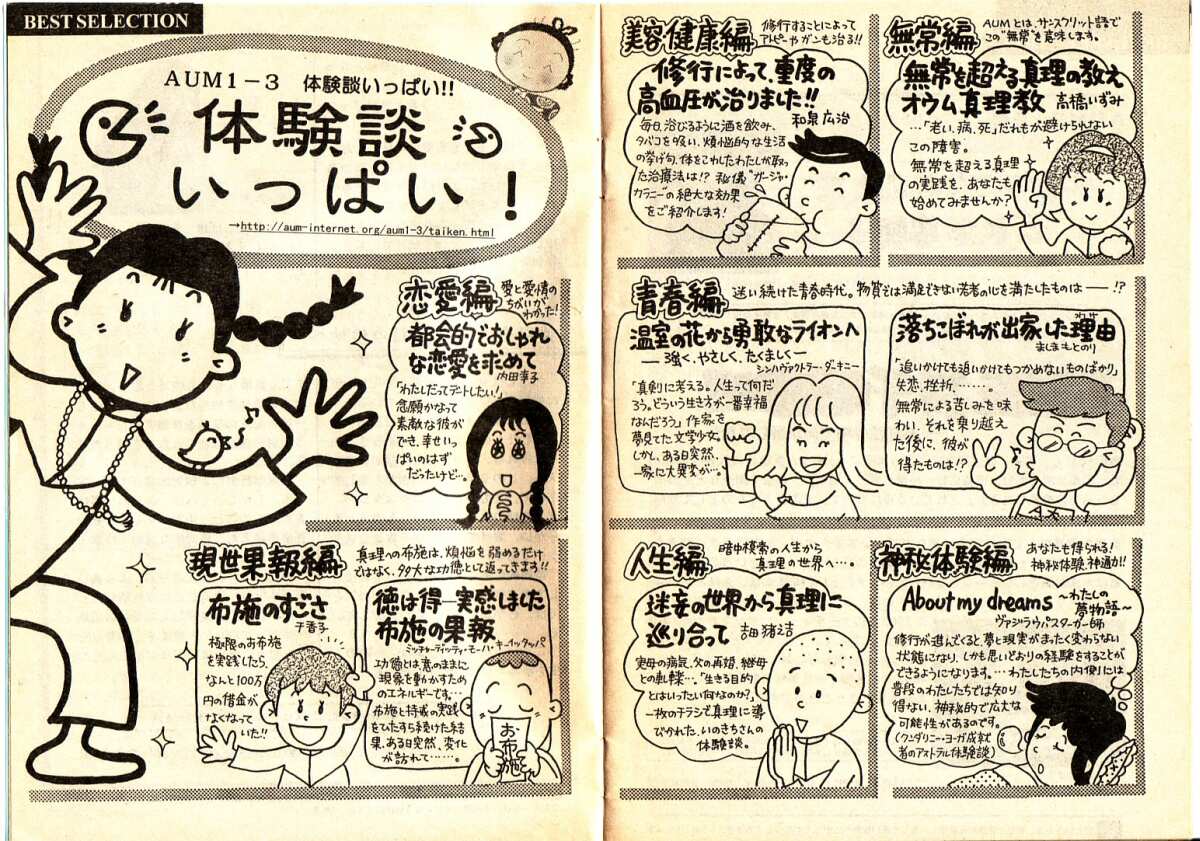 BEST SELECTION
AUM1－3　体験談いっぱい!!
体験談
いっぱい！
→http://aum-internet.org/aum1-3/taiken.html
恋愛編
愛と愛情の
ちがいが
わかった!
都会的でおしゃれ
な恋愛を求めて
内田享子
「わたしだってデートしたい!」
念願かなって
素敵な彼が
でき、幸せいっ
ぱいのはず
だったけど…。
現世果報編
真理への布施は、煩悩を弱めるだけ
ではなく、多大な功徳として返ってきます!!
布施のすごさ
千香子
極限のお布施
を実践したら、
なんと100万
円の借金が
なくなって
いた!!
徳は得—実感しました
布施の果報
ミッチャーディッティ・モーハ・キーイッタッパ
功徳とは、意のままに
現象を動かすため
のエネルギーです。…
布施と持戒の実践
をひたすら続けた結
果、ある日突然、変化
が訪れて……。
お布施
美容健康編
修行することによって
アトピーやガンも治る!!
修行によって、重度の
高血圧が治りました!!
和泉広治
毎日、浴びるように酒を飲み、
タバコを吸い、煩悩的な生活
の挙げ句、体をこわしたわたしが取っ
た治療法は!? 秘儀"ガージャ・
カラニー"の絶大な効果
をご紹介します!
無常編
AUMとは、サンスクリット語で
この"無常"を意味します。
無常を超える真理の教え
オウム真理教
高橋いずみ
…「老い、病、死」だれもが避けられない
この障害。
無常を超える真理
の実践を、あなたも
始めてみませんか?
青春編
迷い続けた青春時代。物質では満足できない若者の心を満たしたものは――!?
温室の花から勇敢なライオンへ
―強く、やさしく、たくましく―
シンハヴァクトラー・ダーキニー
「真剣に考える。人生って何だ
ろう。どういう生き方が一番幸福
なんだろう」作家を
夢見てた文学少女。
しかし、ある日突然、
一家に大異変が…。
落ちこぼれが出家した理由
わけ
ましまもとのり
「追いかけても追いかけてもつかめないものばかり」
失恋、挫折、……。
無常による苦しみを味
わい、それを乗り越え
た後に、彼が
得たものは!?
人生編
暗中模索の人生から
真理の世界へ…。
迷妄の世界から真理に
巡り合って
吉田猪之吉
実母の病気、父の再婚、継母
との軋轢…。「生きる目的
とはいったい何なのか?」
一枚のチラシで真理に導
びかれた、いのきちさんの
体験談。
神秘体験編
あなたも得られる!
神秘体験、神通力!!
About my dreams
～わたしの
夢物語～
ヴァジラヴァパスターガー師
修行が進んでくると、夢と現実がまったく変わらない
状態になり、しかも思いどおりの経験をすることが
できるようになります。…わたしたちの内側には
普段のわたしたちでは知り
得ない、神秘的で広大な
可能性があるのです。
(クンダリニー・ヨーガ成就
者のアストラル体験談)